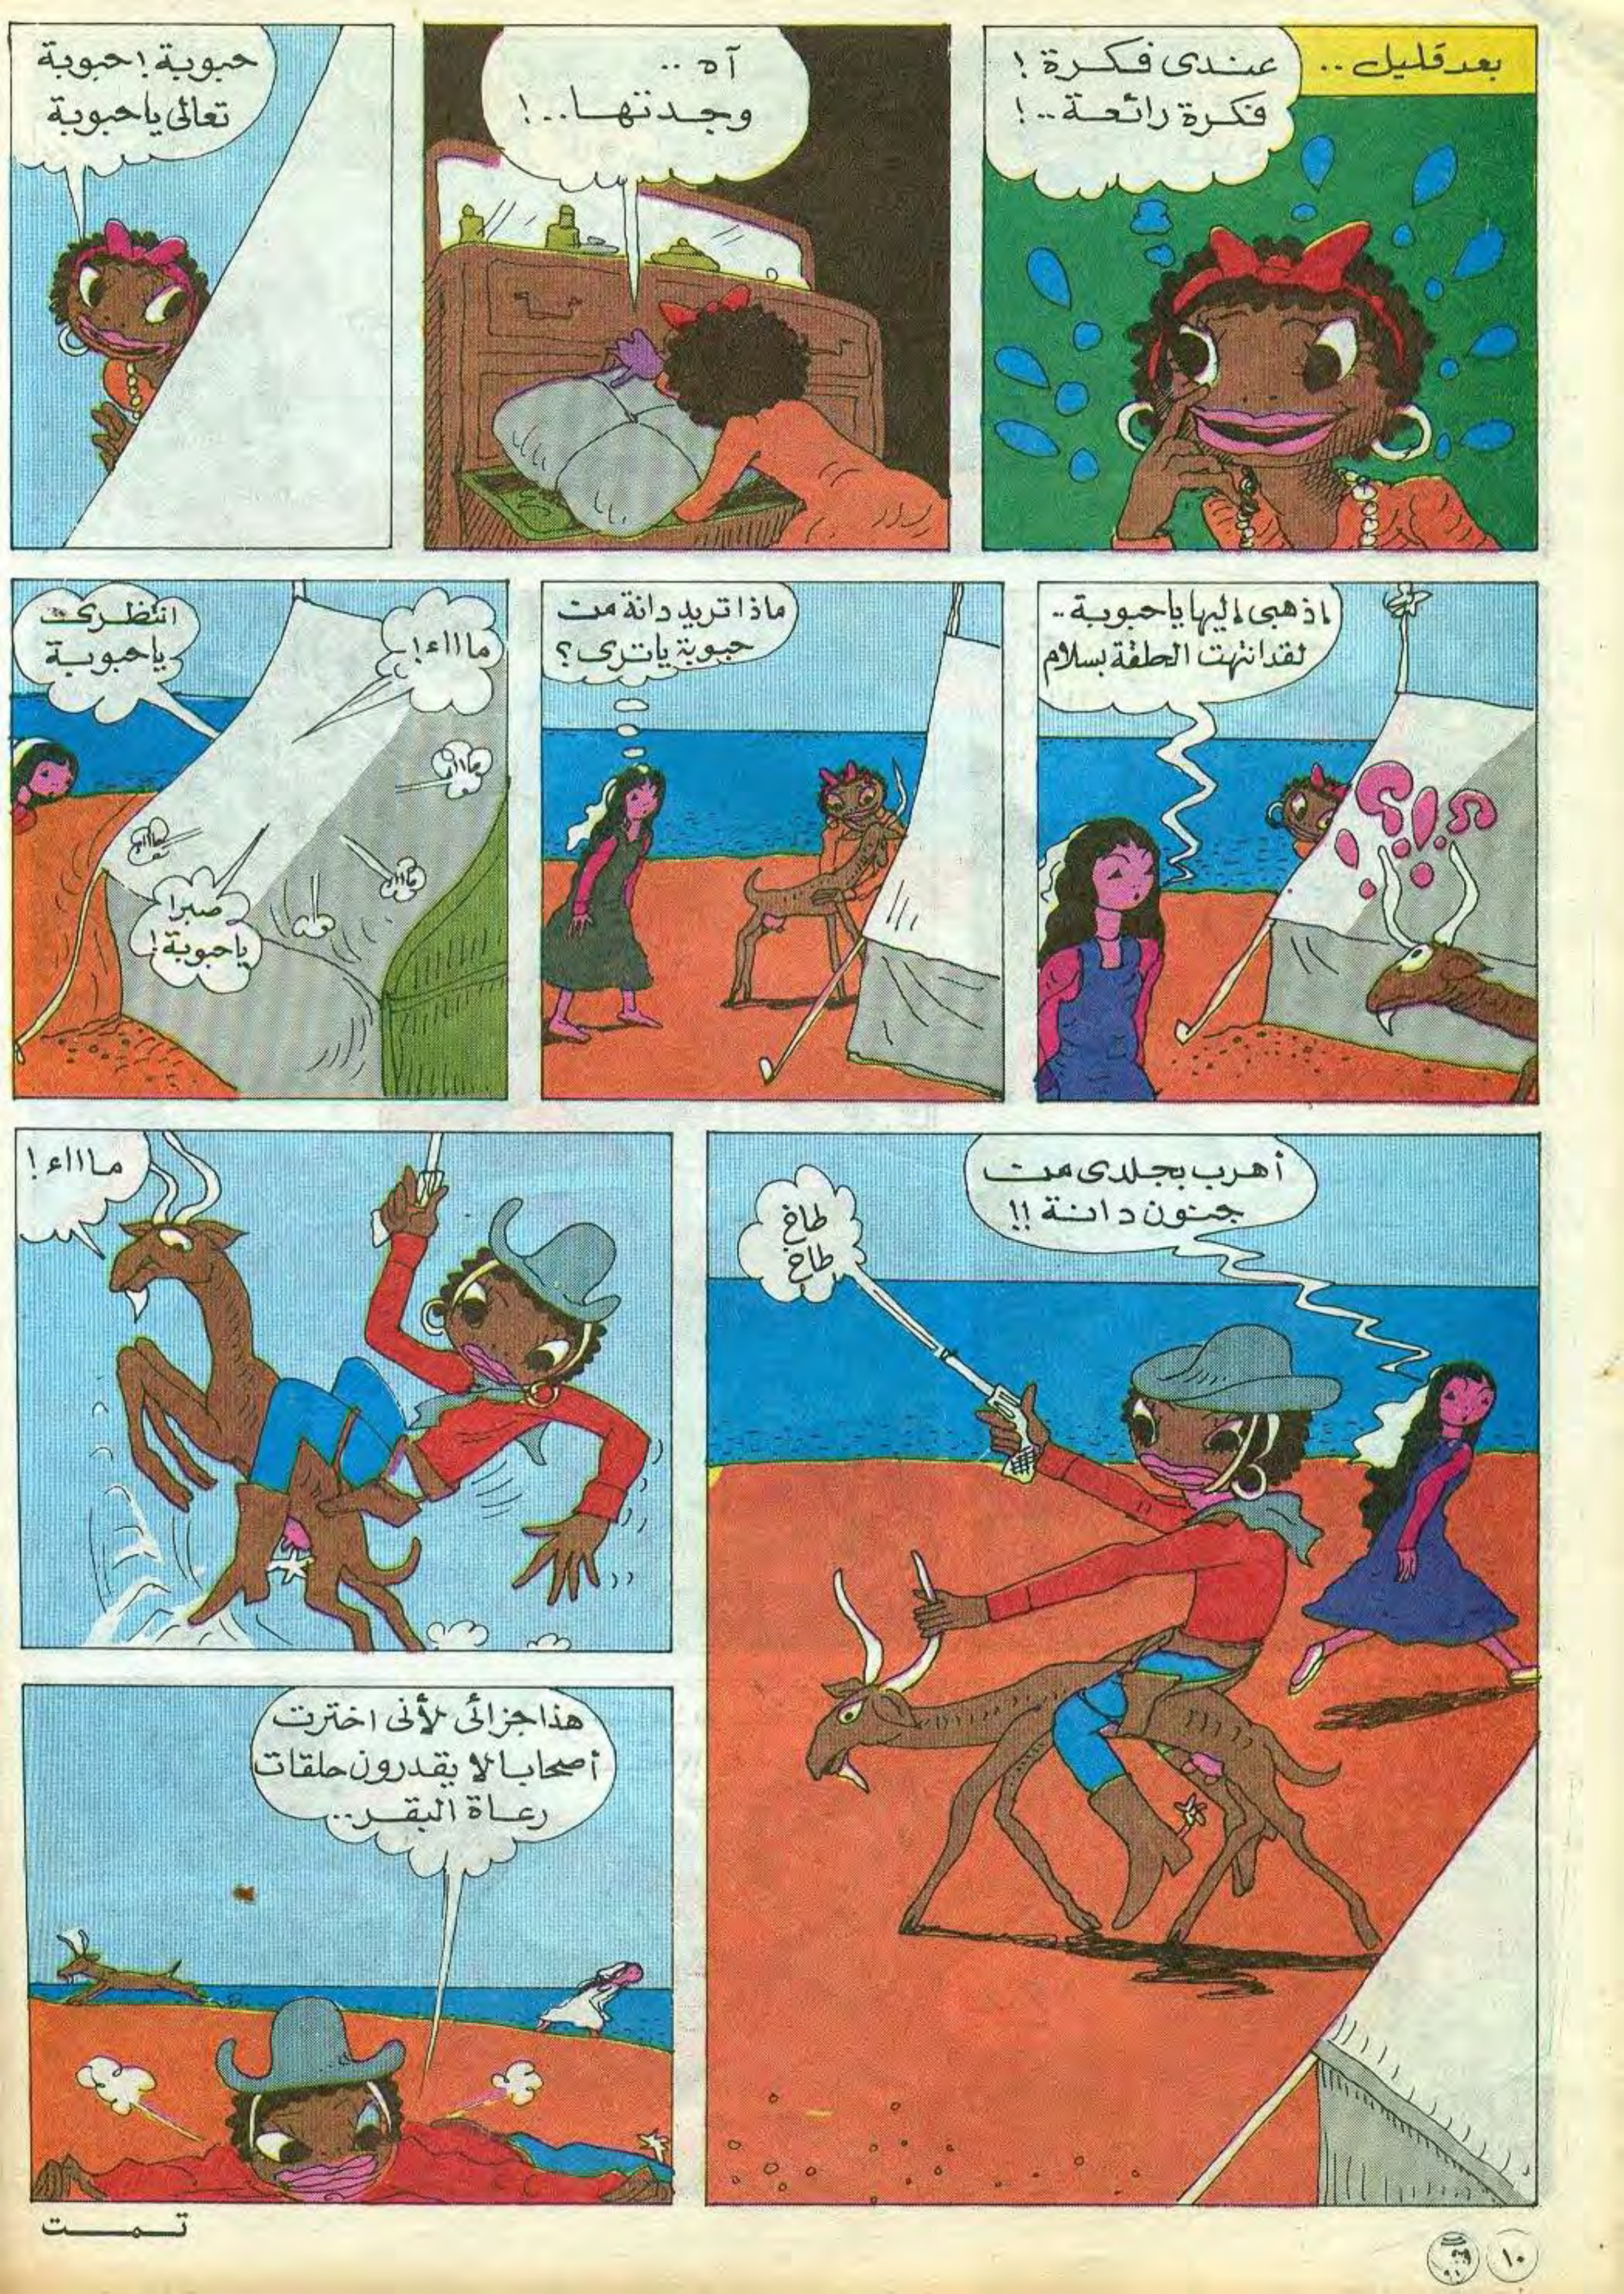 بعد قليل ..
عندى فكرة !
فكرة رائعة ..!
آه ..
وجدتها ..!
حبوبة ! حبوبة
تعالى ياحبوبة
اذهبى إليها ياحبوبة ..
لقد انتهت الحلقة بسلام
؟!؟
ماذا تريد دانة من
حبوبة ياترى ؟
ماااء !
انتظرى
ياحبوبة
مااء
مااء
مااء
صبرا
ياحبوبة !
أهرب بجلدى من
جنون دانة !!
طاخ
طاخ
ماااء !
هذا جزائى لأنى اخترت
أصحابا لا يقدرون حلقات
رعاة البقر ..
تمت
١٠